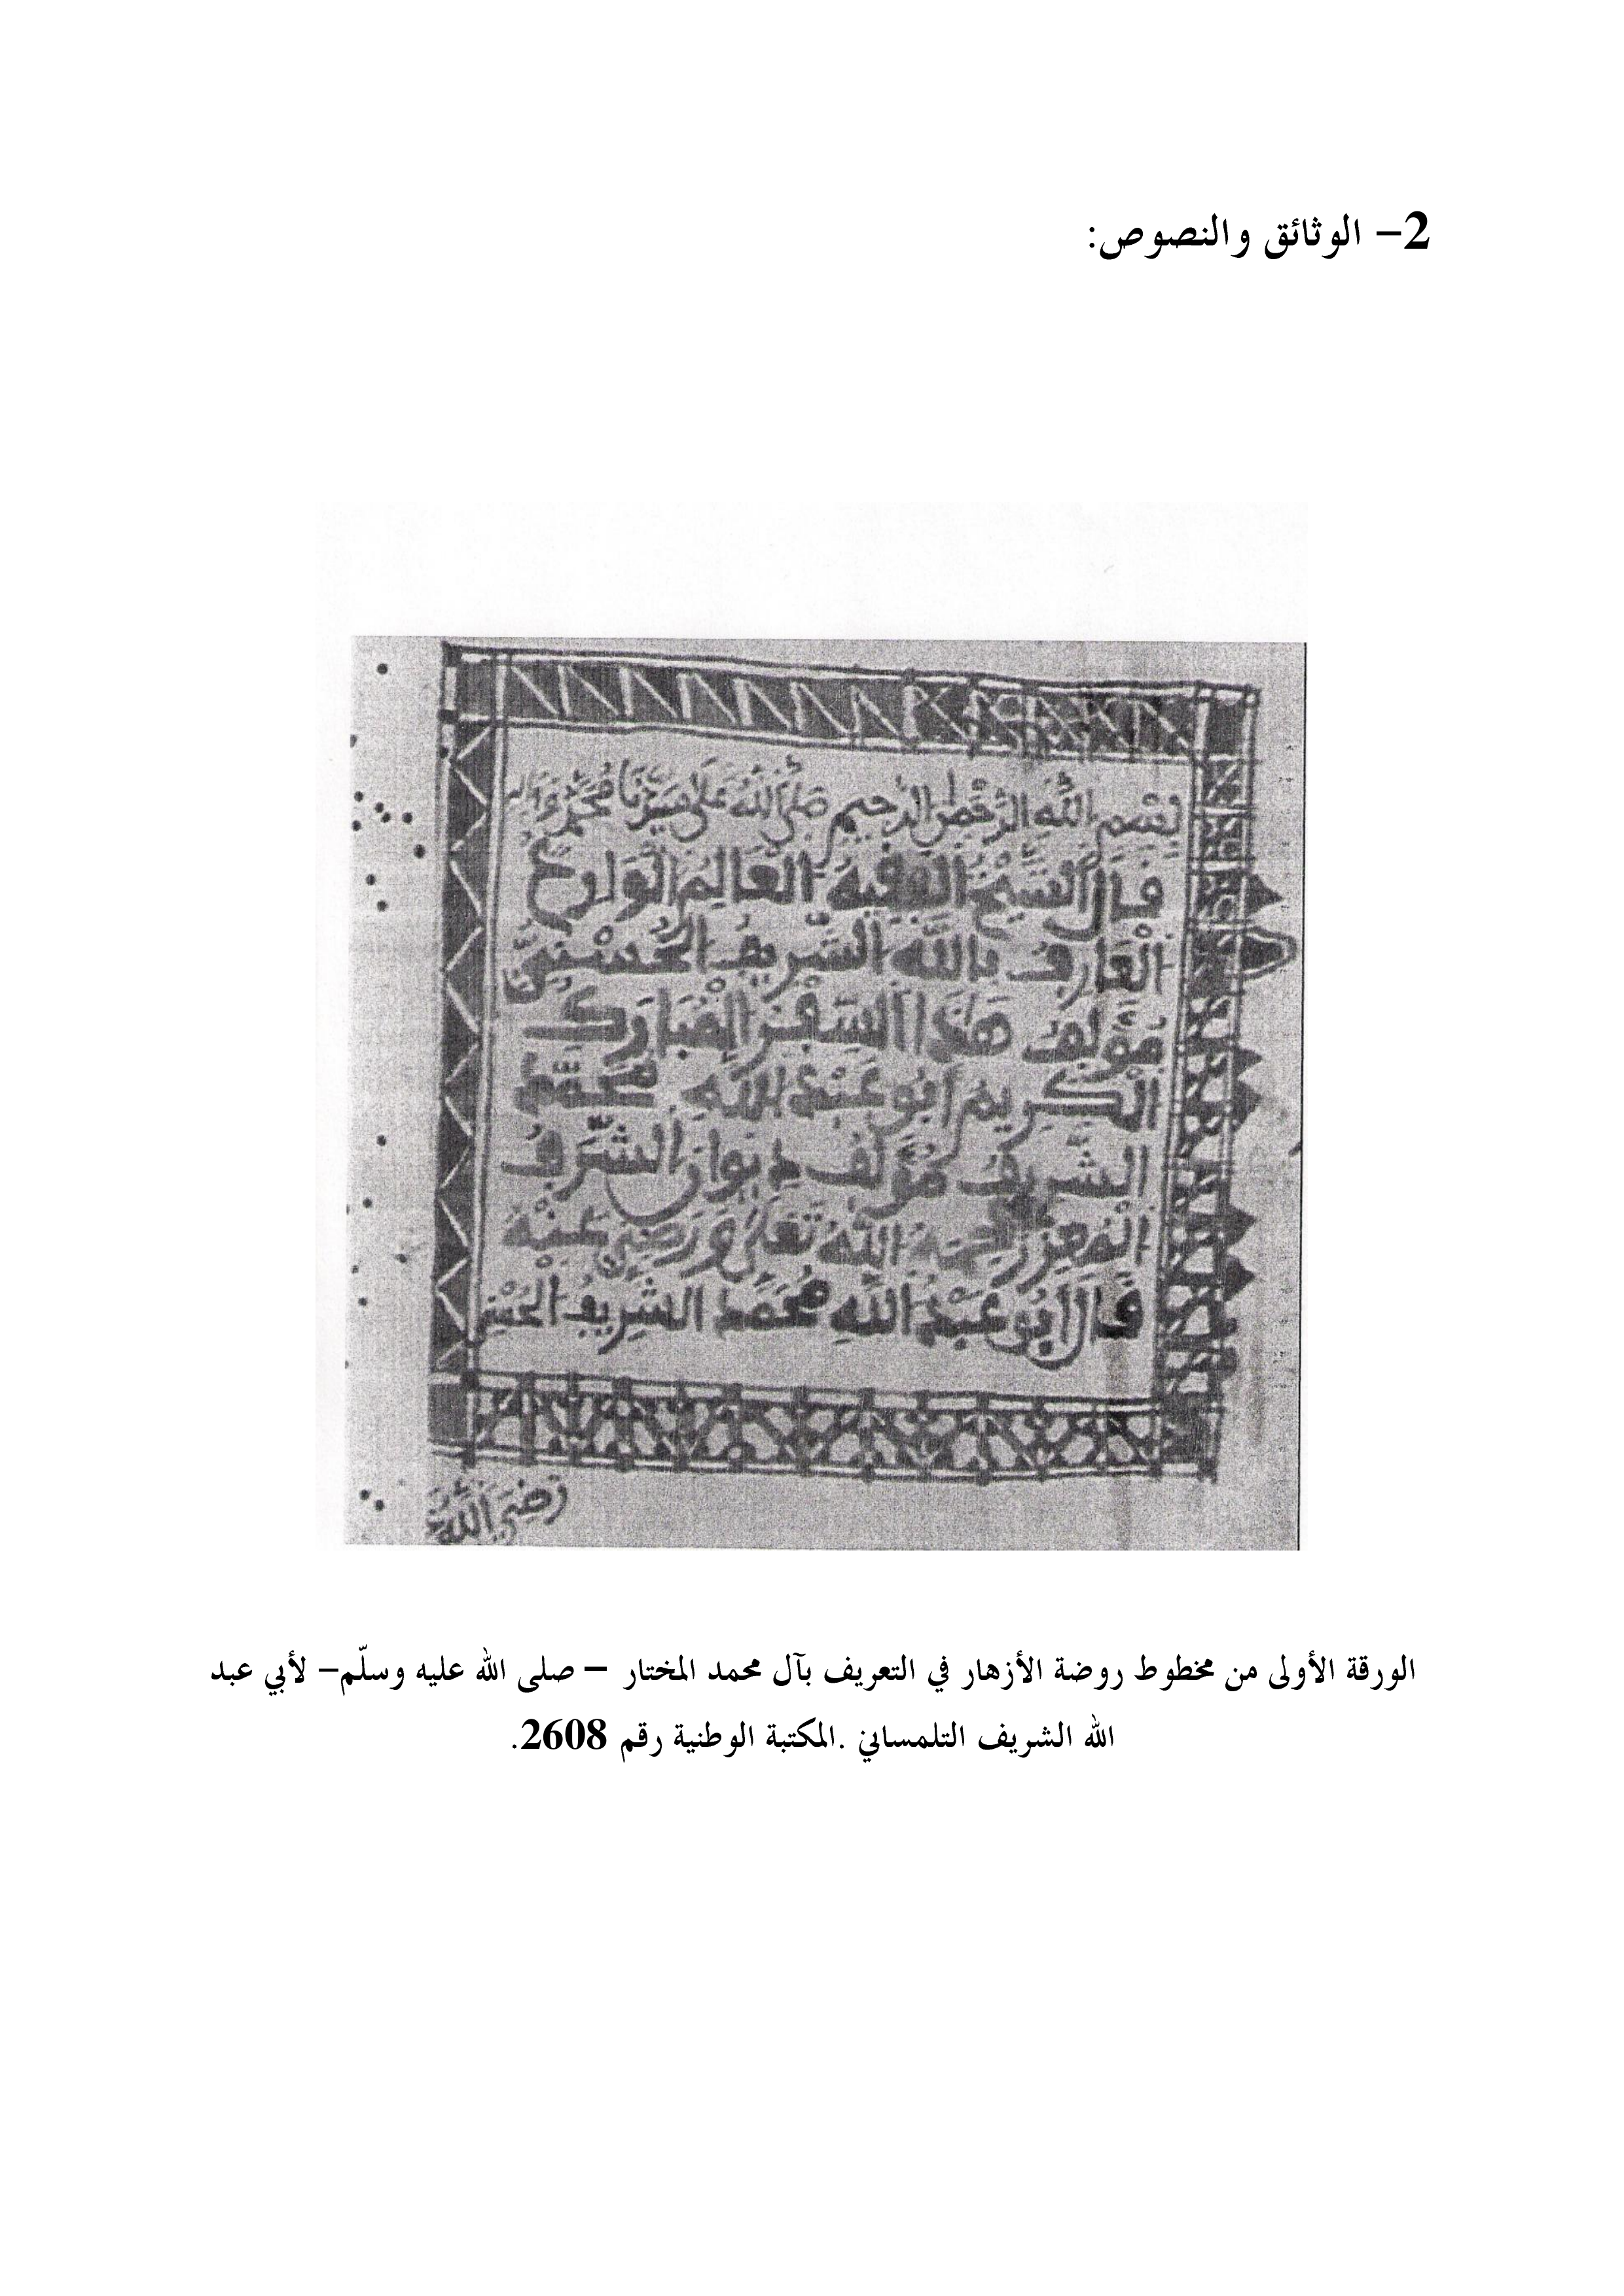 2– الوثائق والنصوص:
بسم الله الرحمن الرحيم صلى الله على سيدنا محمد وءاله
قال الشيخ الفقيه العالم الوارع
العارف بالله الشريف الحسني
مؤلف هذا السفر المبارك
الكريم ابو عبد الله محمد
الشريف مؤلف ديوان الشرف
المعزز رحمه الله تعلى ورضي عنه
قال ابو عبد الله محمد الشريف الحسني
رضي الله
الورقة الأولى من مخطوط روضة الأزهار في التعريف بآل محمد المختار – صلى الله عليه وسلّم– لأبي عبد
الله الشريف التلمساني .المكتبة الوطنية رقم 2608.